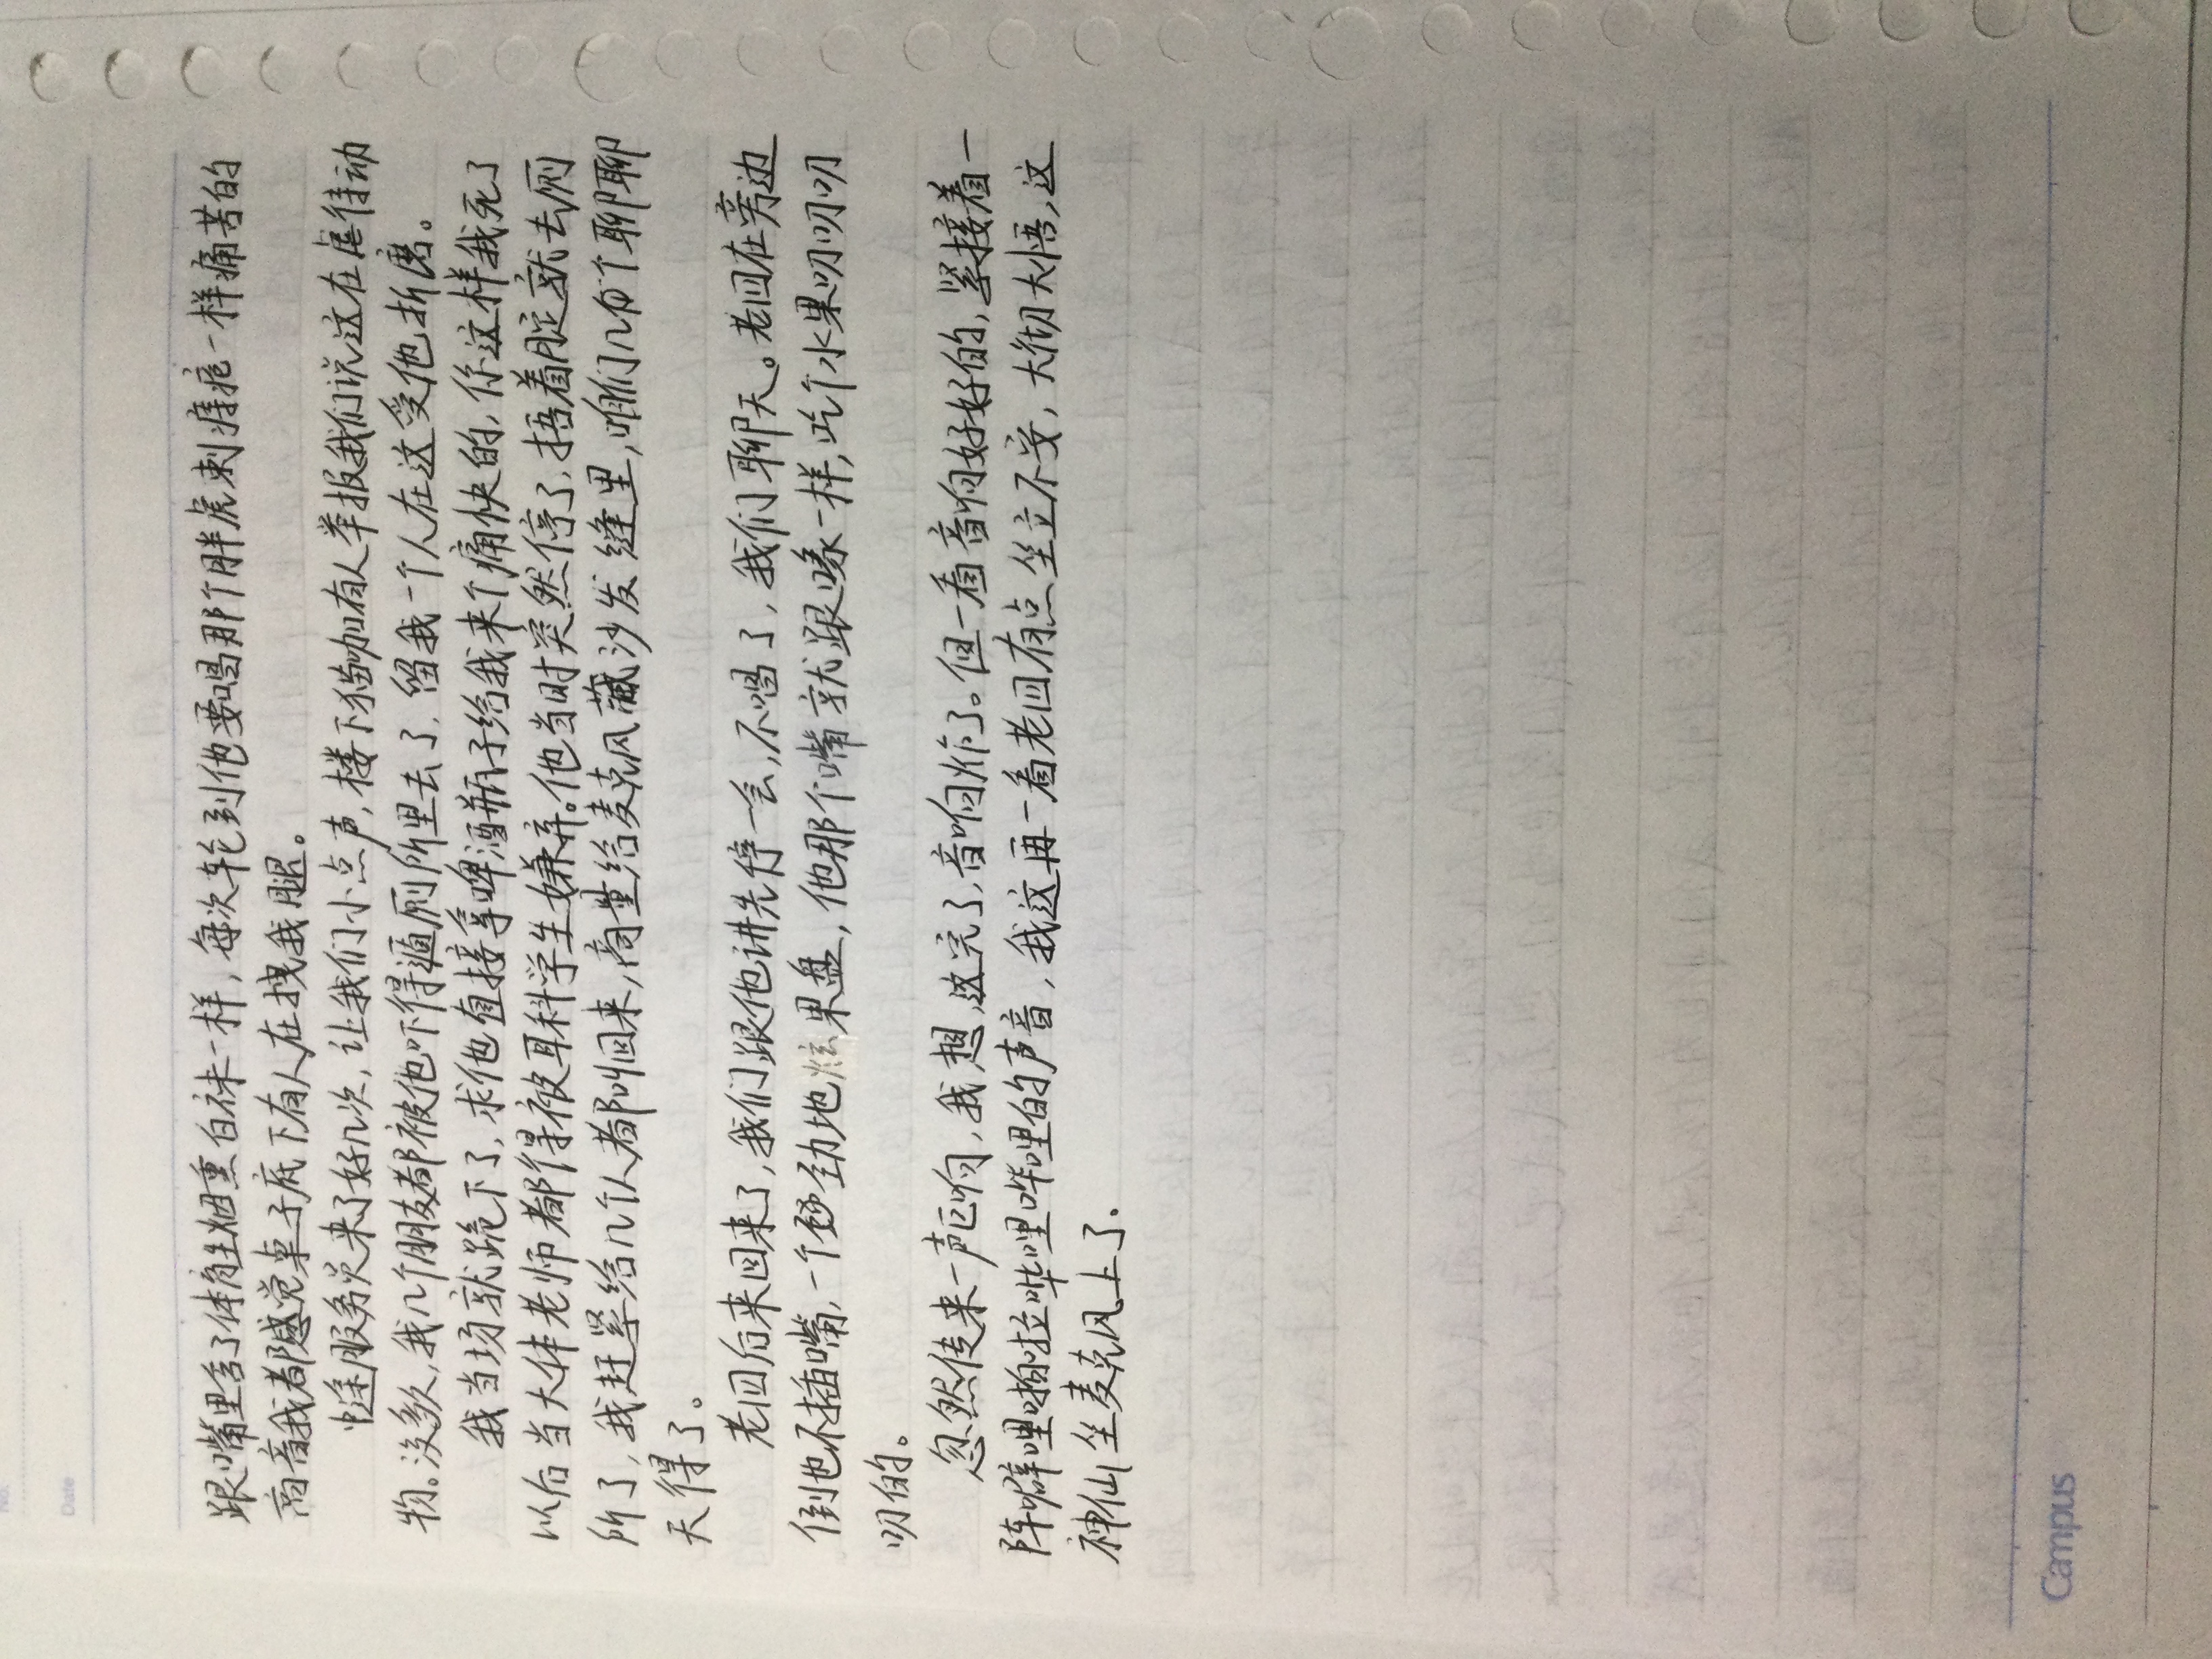 No.
Date
跟嘴里含了体育生烟熏白袜一样，每次轮到他要唱那个胖虎刺痔疮一样痛苦的
高音我都感觉桌子底下有人在拽我腿。
中途服务员来了好几次，让我们小点声，楼下猫咖有人举报我们说这在虐待动
物。没多久，我几个朋友都被他吓得遁厕所里去了，留我一个人在这受他折磨。
我当场就跪下了，求他直接拿啤酒瓶子给我来个痛快的，你这样我死了
以后当大体老师都得被耳科学生嫌弃。他当时突然停了，捂着腚就去厕
所了，我赶紧给几个人都叫回来，商量给麦克风藏沙发缝里，咱们几个聊聊
天得了。
老回后来回来了，我们跟他讲先停一会，不唱了，我们聊天。老回在旁边
倒也不插嘴，一个劲地炫果盘，他那个嘴就跟喙一样，吃个水果叨叨叨
叨的。
忽然传来一声巨响，我想，这完了，音响炸了。但一看音响好好的，紧接着一
阵噼哩啪啦哗哩哗哩的声音，我这再一看老回有点坐立不安，大彻大悟，这
神仙坐麦克风上了.
Campus